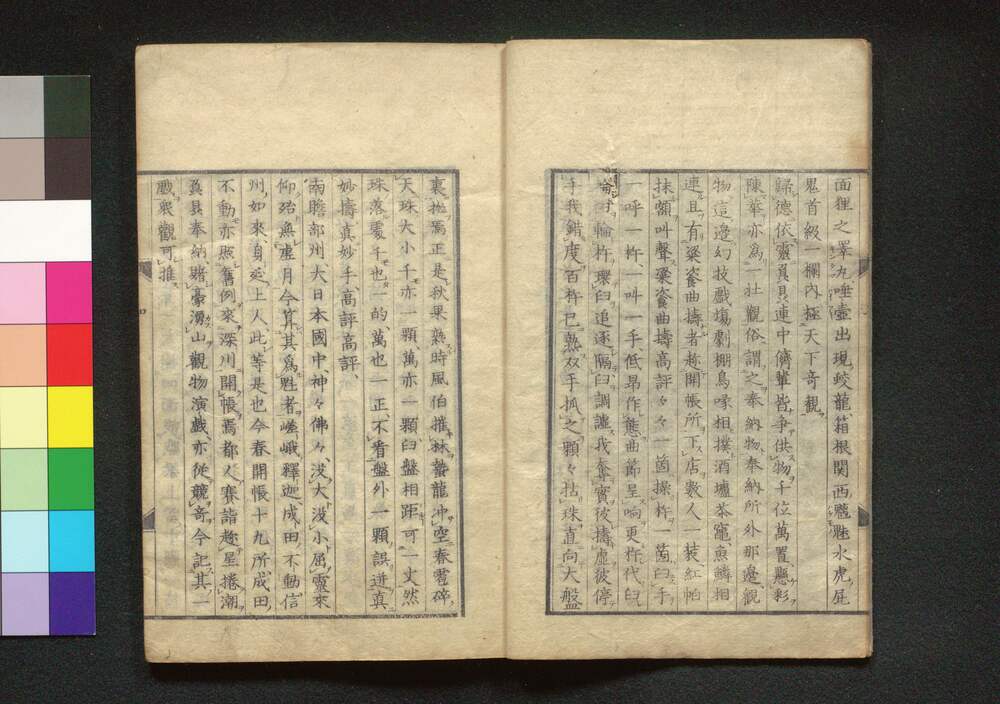 面狸之睪丸唾壷出現蛟龍箱根関西魑魅水虎屁
鬼首級一欄内極天下奇観
歸德依靈員員連中儕輩皆争供物千位萬置懸彩
陳華亦為一壮觀俗謂之奉納物奉納所外那邊觀
物這邊幻技戲場劇棚鳥喙相撲酒壚茶竈魚鱗相
連且有粢餈曲擣者趁開帳所下店數人一裝紅帕
抹額叫聲粢餈曲擣高評々々一箇操杵一箇臼手
一呼一杵一叫一手低昂作態曲節呈响更杵代臼
輪杵環臼追逐隔臼調謔我奪實彼擣虚彼停
手我錯度百杵已熟双手抓之顆々拈珠直向大盤
裏抛焉正是秋果熟時風伯摧林蟄龍冲空春雹碎
天珠大小千亦一顆萬亦一顆臼盤相距可一丈然
珠落處千也一的萬也一正不看盤外一顆誤迸真
妙擣真妙手高評高評
南瞻部州大日本國中神々佛々没大没小屈靈來
仰殆無虚月今算其為魁者嵯峨釋迦成田不動信
州如來身延上人此等是也今春開帳十九所成田
不動亦照舊例來深川開帳焉都人賽詣趁星捲潮
莫具奉納賭豪湧山觀物演戲亦從競奇今記其一
戲衆觀可推